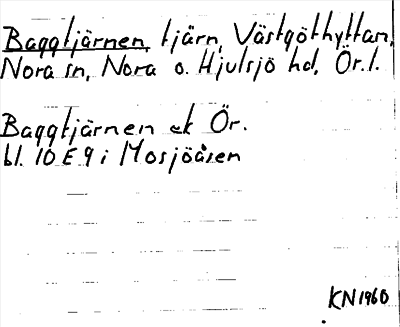 Baggtjärnen, tjärn, Västgöthyttan,
Nora sn, Nora o. Hjulsjö hd, Ör.l.
Baggtjärnen ek Ör.
bl. 10 E 9 i Mosjöåsen
KN1960